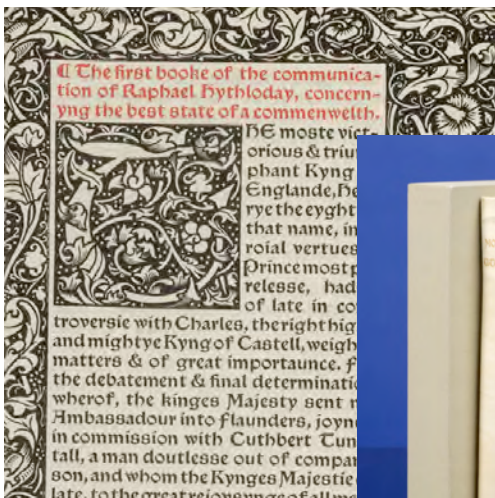 ¶ The first booke of the communica-
tion of Raphael Hythloday, concern-
yng the best state of a commenwelth.
THE moste vict-
orious & trium
phant Kyng
Englande, He
rye the eyght
that name, in
roial vertues
Prince most p
relesse, had
of late in co
troversie with Charles, the right hig
and mightye Kyng of Castell, weigh
matters & of great importaunce. F
the debatement & final determinatio
wherof, the kinges Majesty sent m
Ambassadour into Flaunders, joyn
in commission with Cuthbert Tun
tall, a man doutlesse out of compar
son, and whom the Kynges Majestie
late, to the great rejoysynge of all me